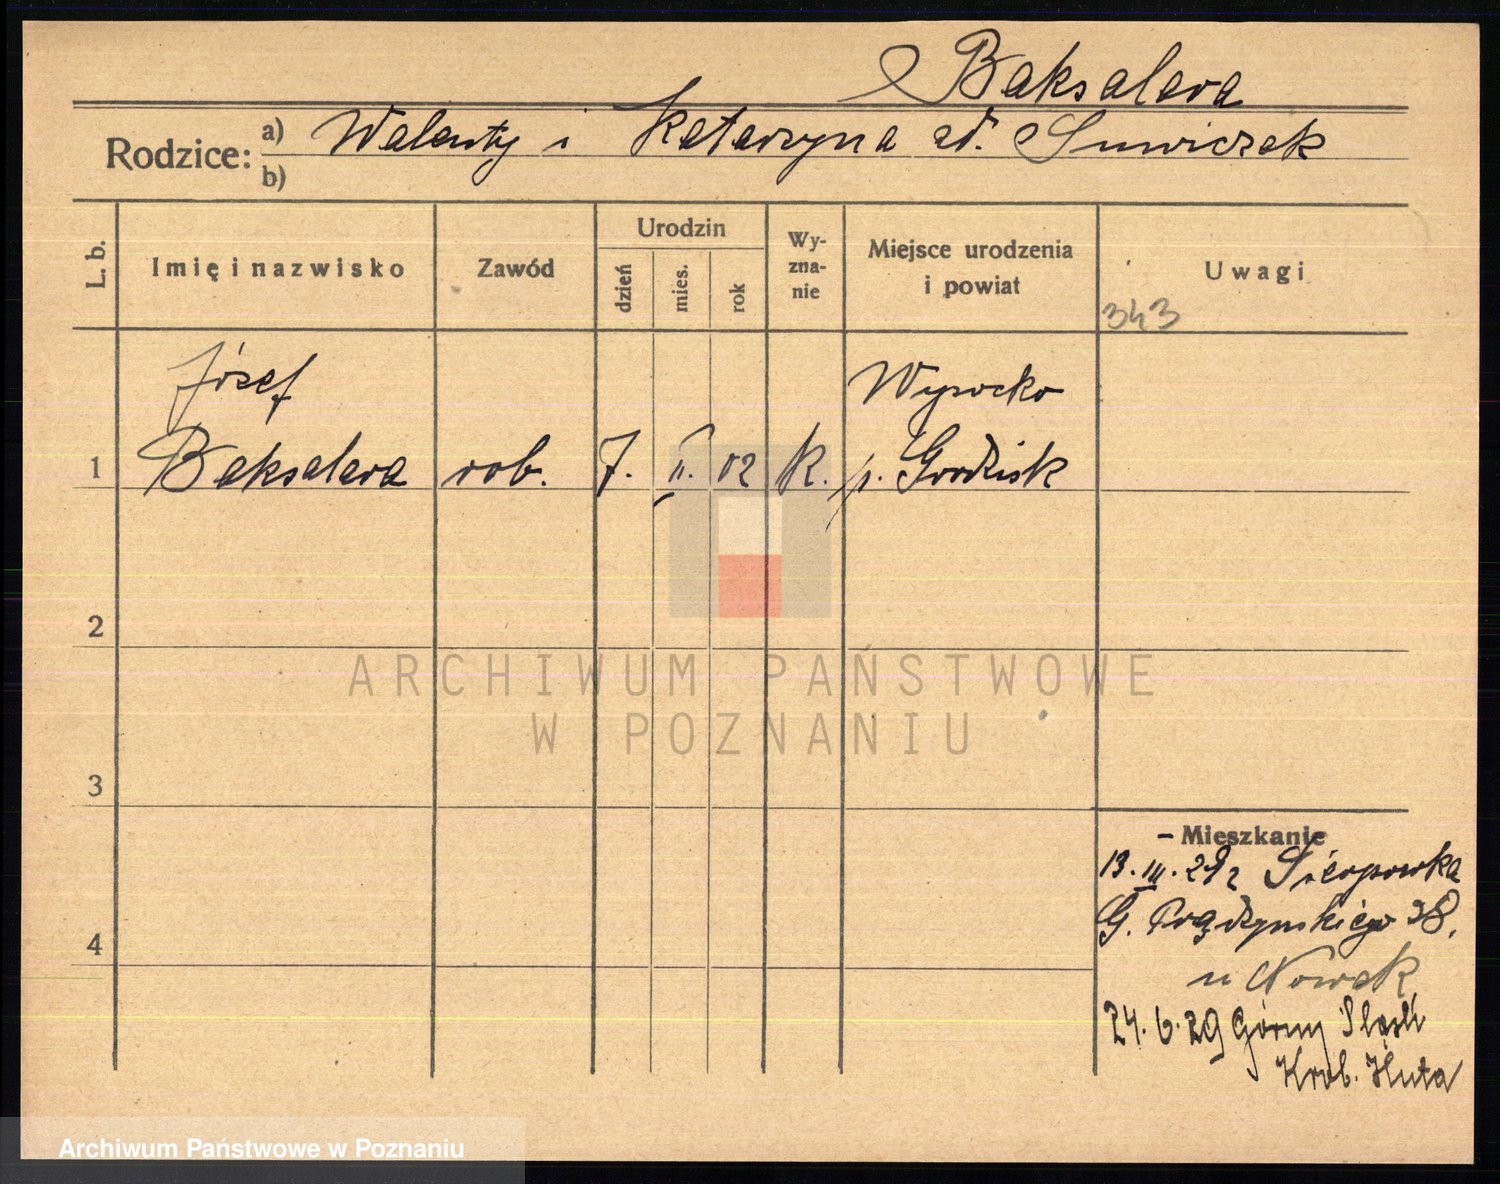 Baksalara
Rodzice: a) Walenty i Katarzyna zd.
b)
L. b. Imię i nazwisko Zawód Urodzin dzień mies. rok Wyznanie Miejsce urodzenia i powiat Uwagi
343
Józef Wysocko
1 Baksalara rob. 7. II. 02 k. p. Grodzisk
2
ARCHIWUM PAŃSTWOWE
W POZNANIU
3
– Mieszkanie
13. III. 29 z Sierpowka
4 G. Prądzyńskiego 38.
u Nowak
24. 6. 29 Górny Śląsk
Krol. Huta
Archiwum Państwowe w Poznaniu